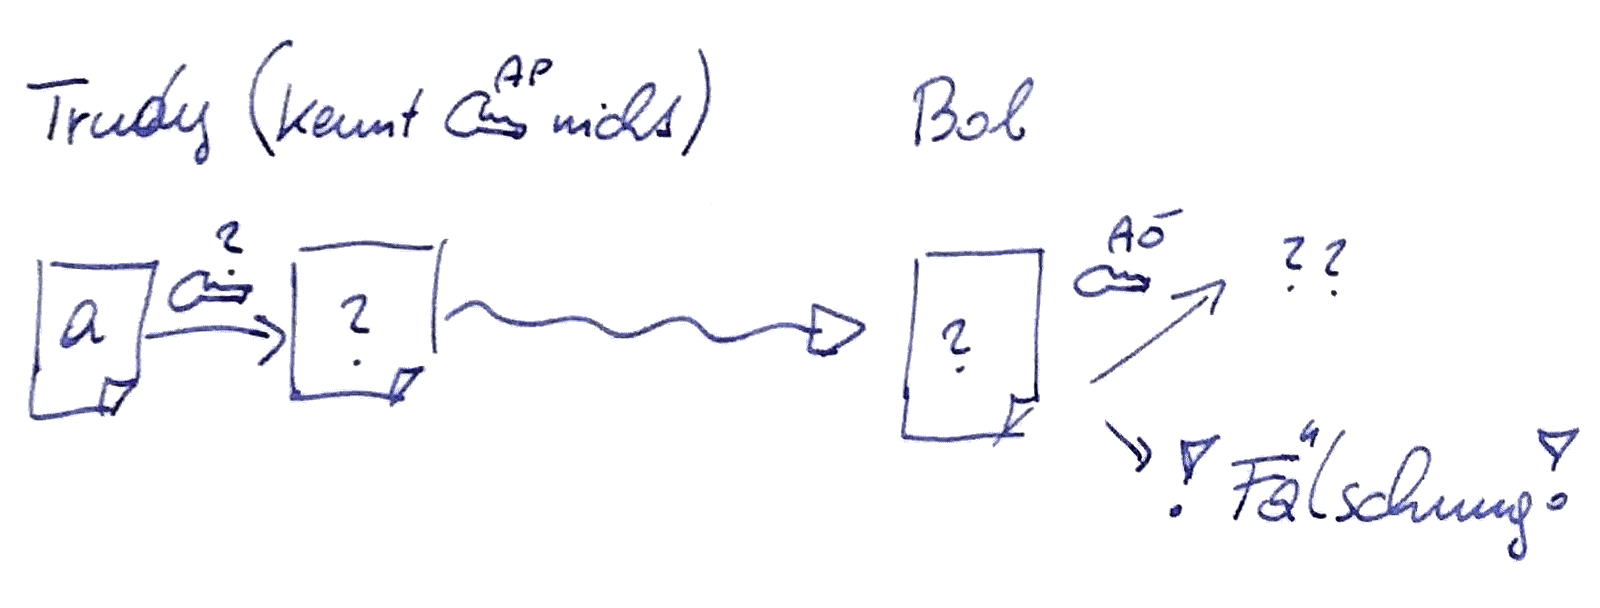 Trudy (kennt AP nicht) Bob
a ? ? ? AÖ ??
! Fälschung!